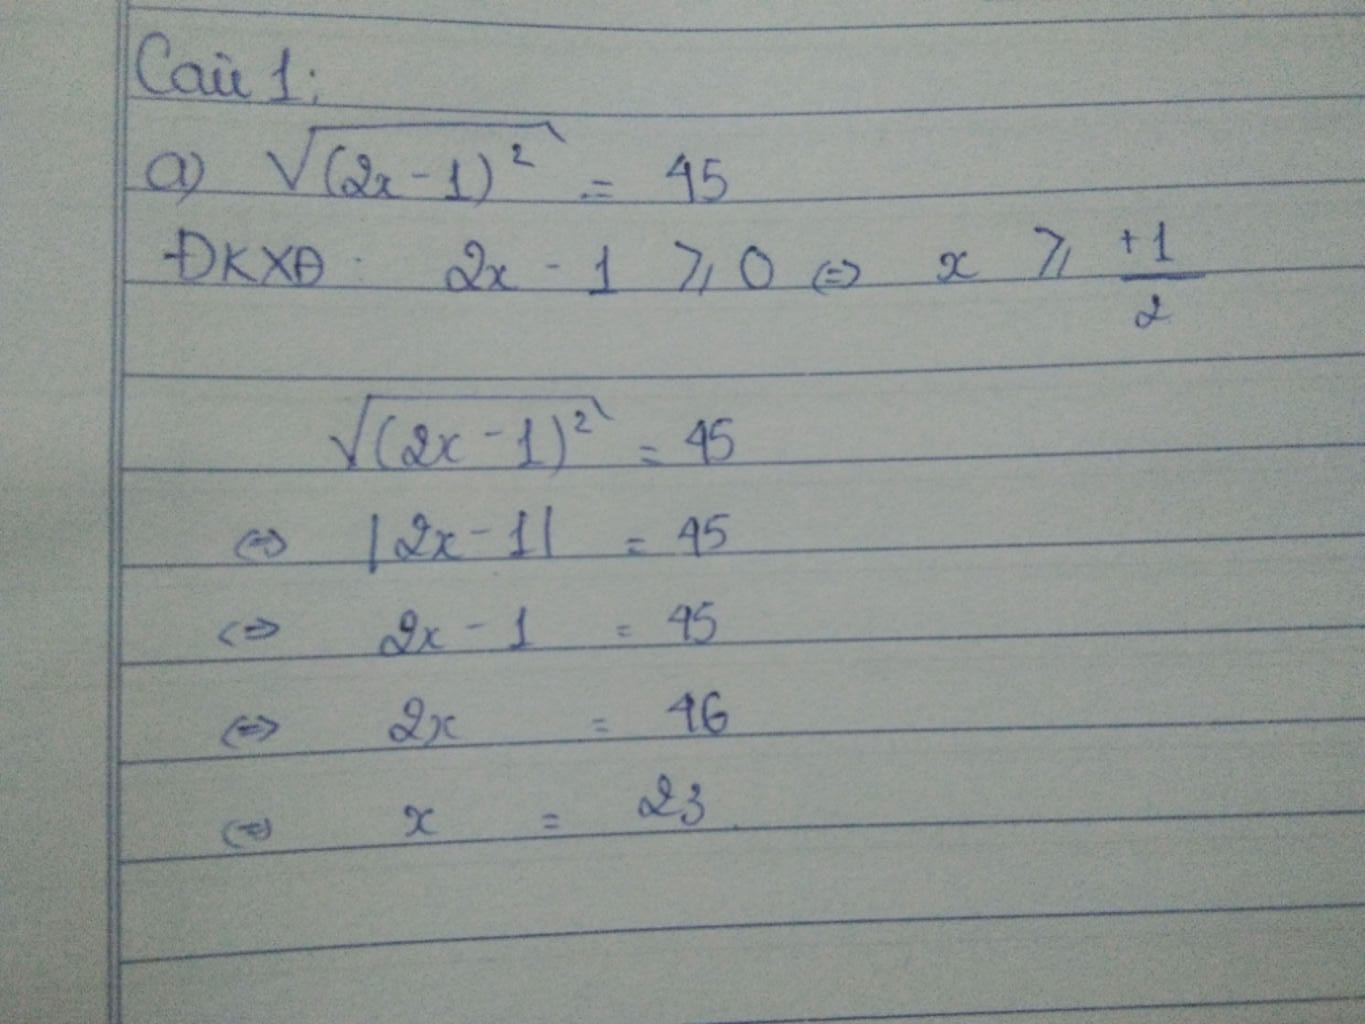 Câu 1:
a) √(2x-1)² = 45
ĐKXĐ: 2x - 1 ⩾ 0 ⇔ x ⩾ +1/2
√(2x-1)² = 45
⇔ |2x-1| = 45
⇔ 2x - 1 = 45
⇔ 2x = 46
⇔ x = 23.